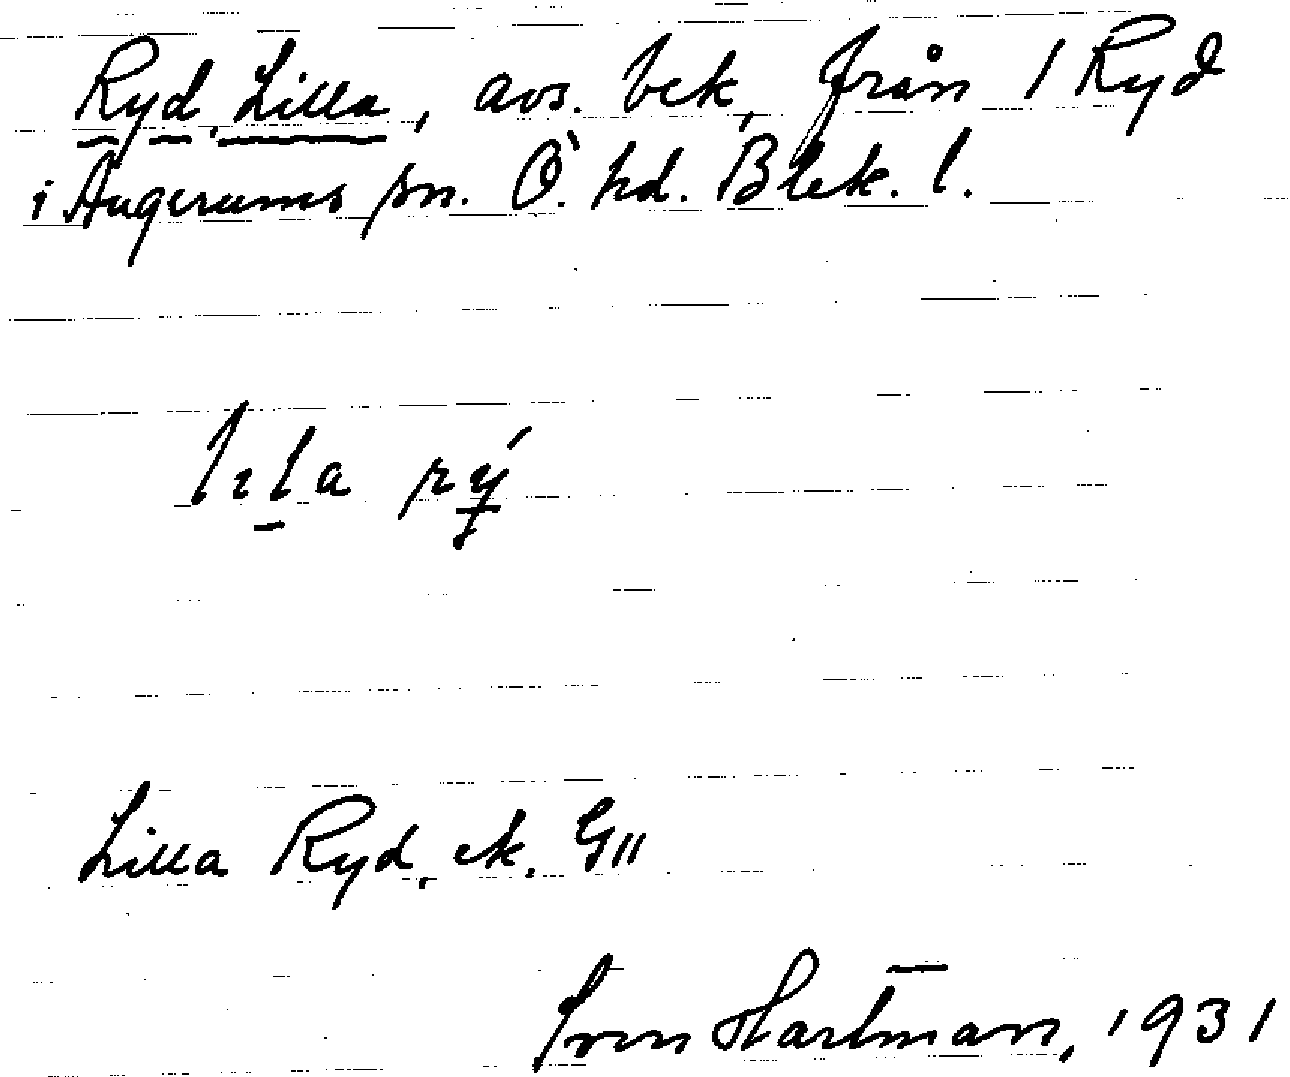 Ryd, Lilla, avs. bek, från 1 Ryd
i Augerums sn. Ö. hd. Blek. l.
lɩla rý
Lilla Ryd, ek. G11
Sven Hartman, 1931